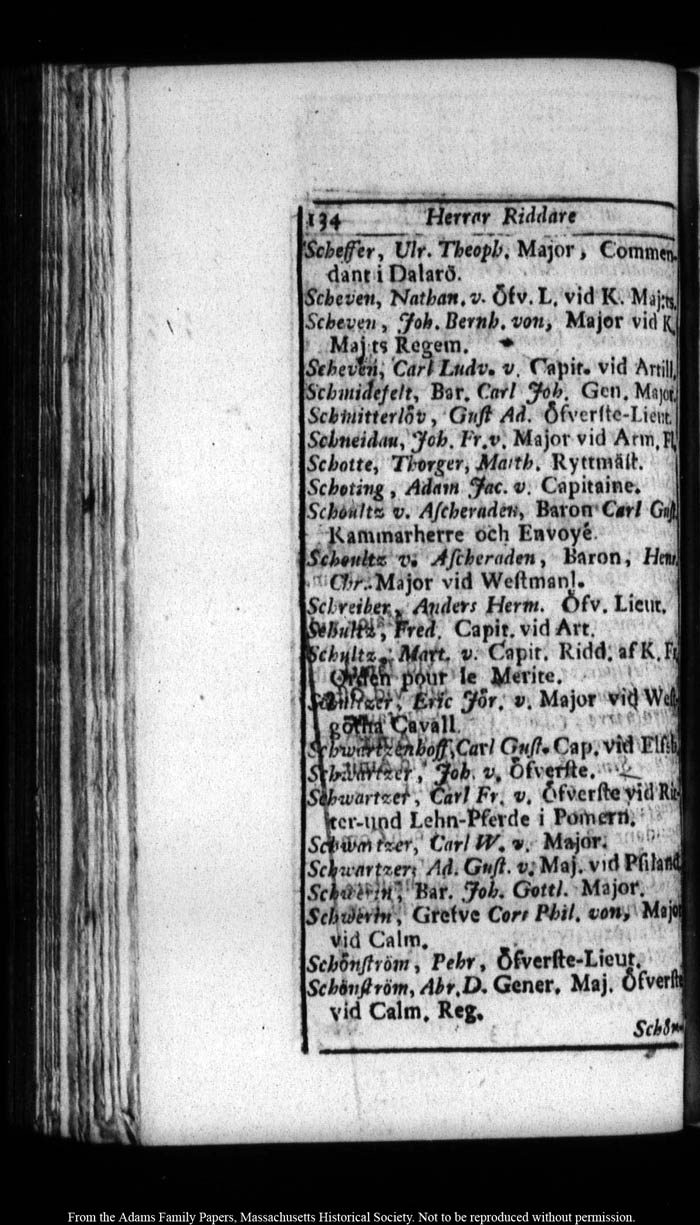 134 Herrar Riddare
Scheffer, Ulr. Theoph. Major, Commen-
dant i Dalarö.
Scheven, Nathan. v. Öfv. L. vid K. Maj:ts.
Scheven, Joh. Bernh. von, Major vid K.
Maj:ts Regem.
Scheven, Carl Ludv. v. Capit. vid Artill.
Schmidefelt, Bar. Carl Joh. Gen. Major.
Schmitterlöv, Gust Ad. Öfverste-Lieut.
Schneidau, Joh. Fr. v. Major vid Arm. Fl.
Schotte, Thorger, Matth. Ryttmäst.
Schoting, Adam Jac. v. Capitaine.
Schoultz v. Ascheraden, Baron Carl Gust.
Kammarherre och Envoyé.
Schoultz v. Ascheraden, Baron, Henr.
Chr. Major vid Westmanl.
Schreiber, Anders Herm. Öfv. Lieut.
Schultz, Fred. Capit. vid Art.
Schultz, Mart. v. Capit. Ridd. af K. Fr.
Orden pour le Merite.
Eric Jör. v. Major vid West-
götha Cavall.
Schwartzenhoff, Carl Gust. Cap. vid Elfsb.
Schwartzer, Joh. v. Öfverste.
Schwartzer, Carl Fr. v. Öfverste vid Rit-
ter-und Lehn-Pferde i Pomern.
Schwartzer, Carl W. v. Major.
Schwartzer, Ad. Gust. v. Maj. vid Psiland.
Schwerin, Bar. Joh. Gottl. Major.
Schwerin, Grefve Cort Phil. von, Major
vid Calm.
Schönström, Pehr, Öfverste-Lieut.
Schönström, Abr. D. Gener. Maj. Öfverste
vid Calm. Reg.
Schön-
From the Adams Family Papers, Massachusetts Historical Society. Not to be reproduced without permission.